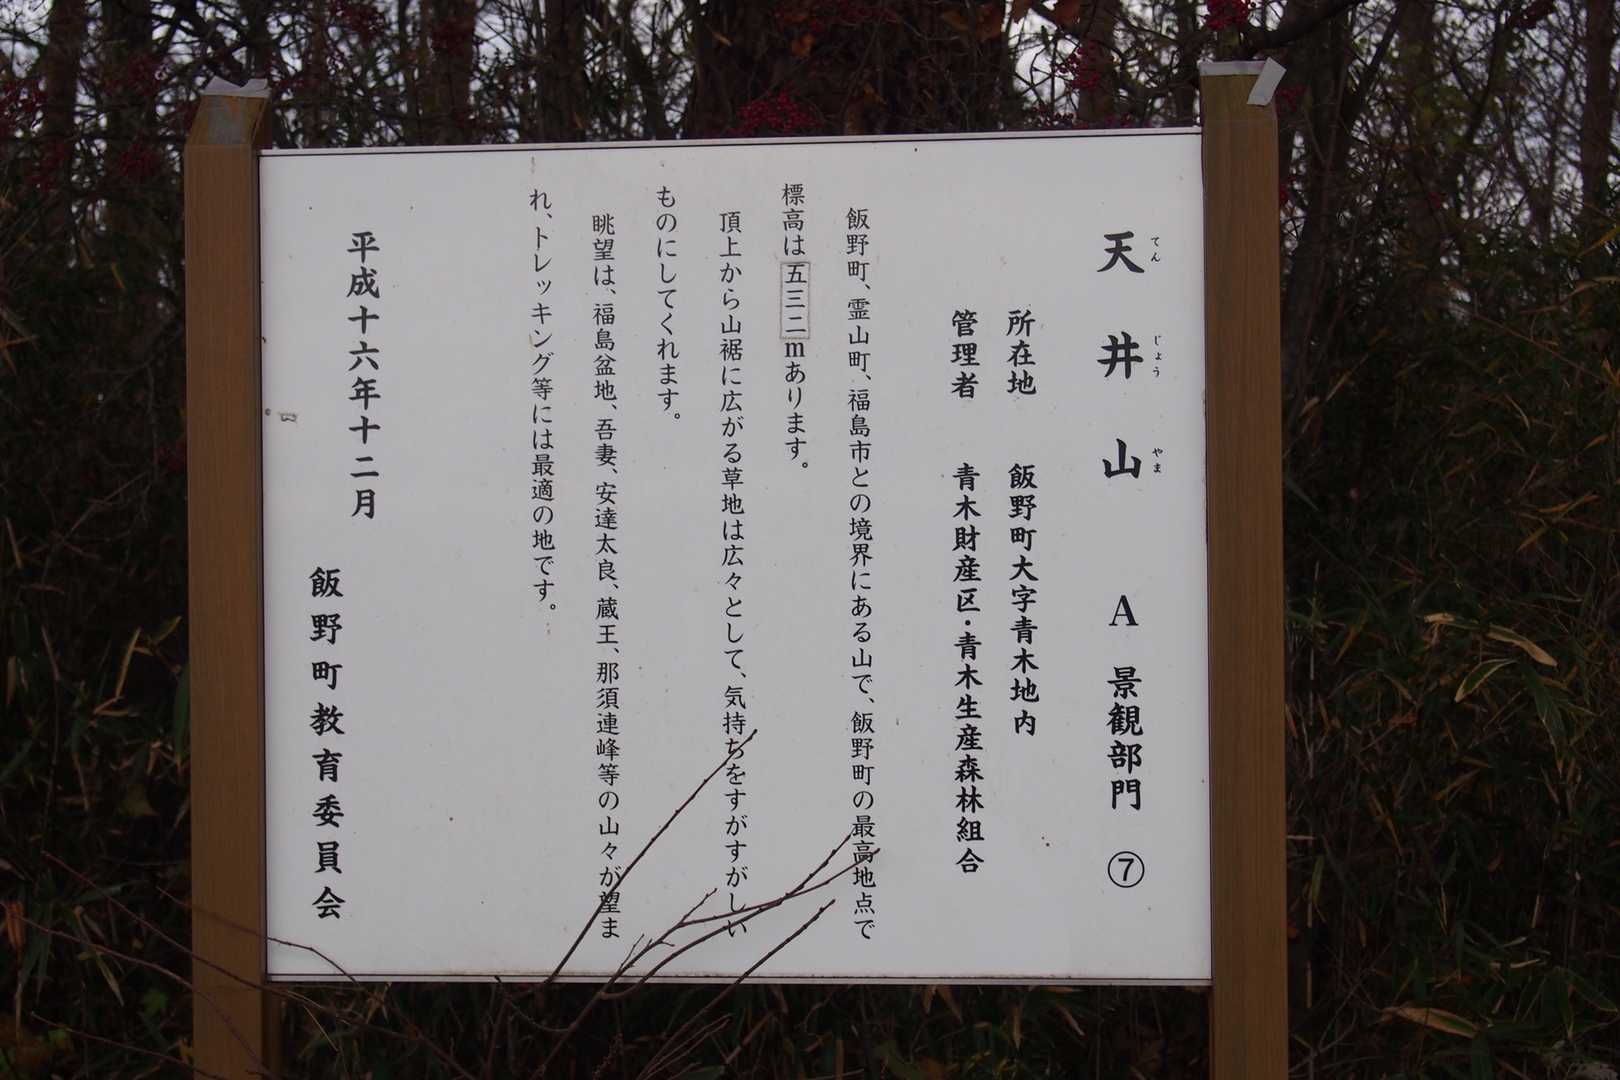 天井山 A 景観部門 ⑦
てんじょうやま
所在地 飯野町大字青木地内
管理者 青木財産区・青木生産森林組合
飯野町、霊山町、福島市との境界にある山で、飯野町の最高地点で
標高は五三二mあります。
頂上から山裾に広がる草地は広々として、気持ちをすがすがしい
ものにしてくれます。
眺望は、福島盆地、吾妻、安達太良、蔵王、那須連峰等の山々が望ま
れ、トレッキング等には最適の地です。
平成十六年十二月
飯野町教育委員会